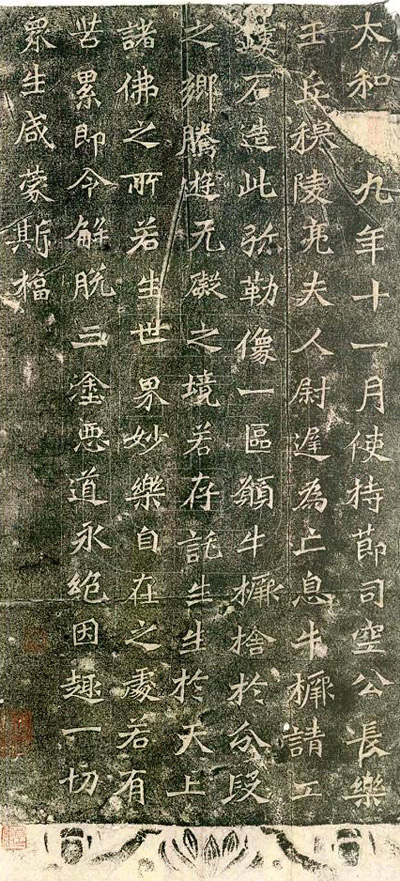 太和□九年十一月使持節司空公長樂
王丘穆陵亮夫人尉遲為亡息牛橛請工
鏤石造此弥勒像一區願牛橛捨於分段
之鄉騰遊无礙之境若存託生生於天上
諸佛之所若生世界妙樂自在之處若有
苦累即令解脫三塗惡道永絕因趣一切
眾生咸蒙斯福